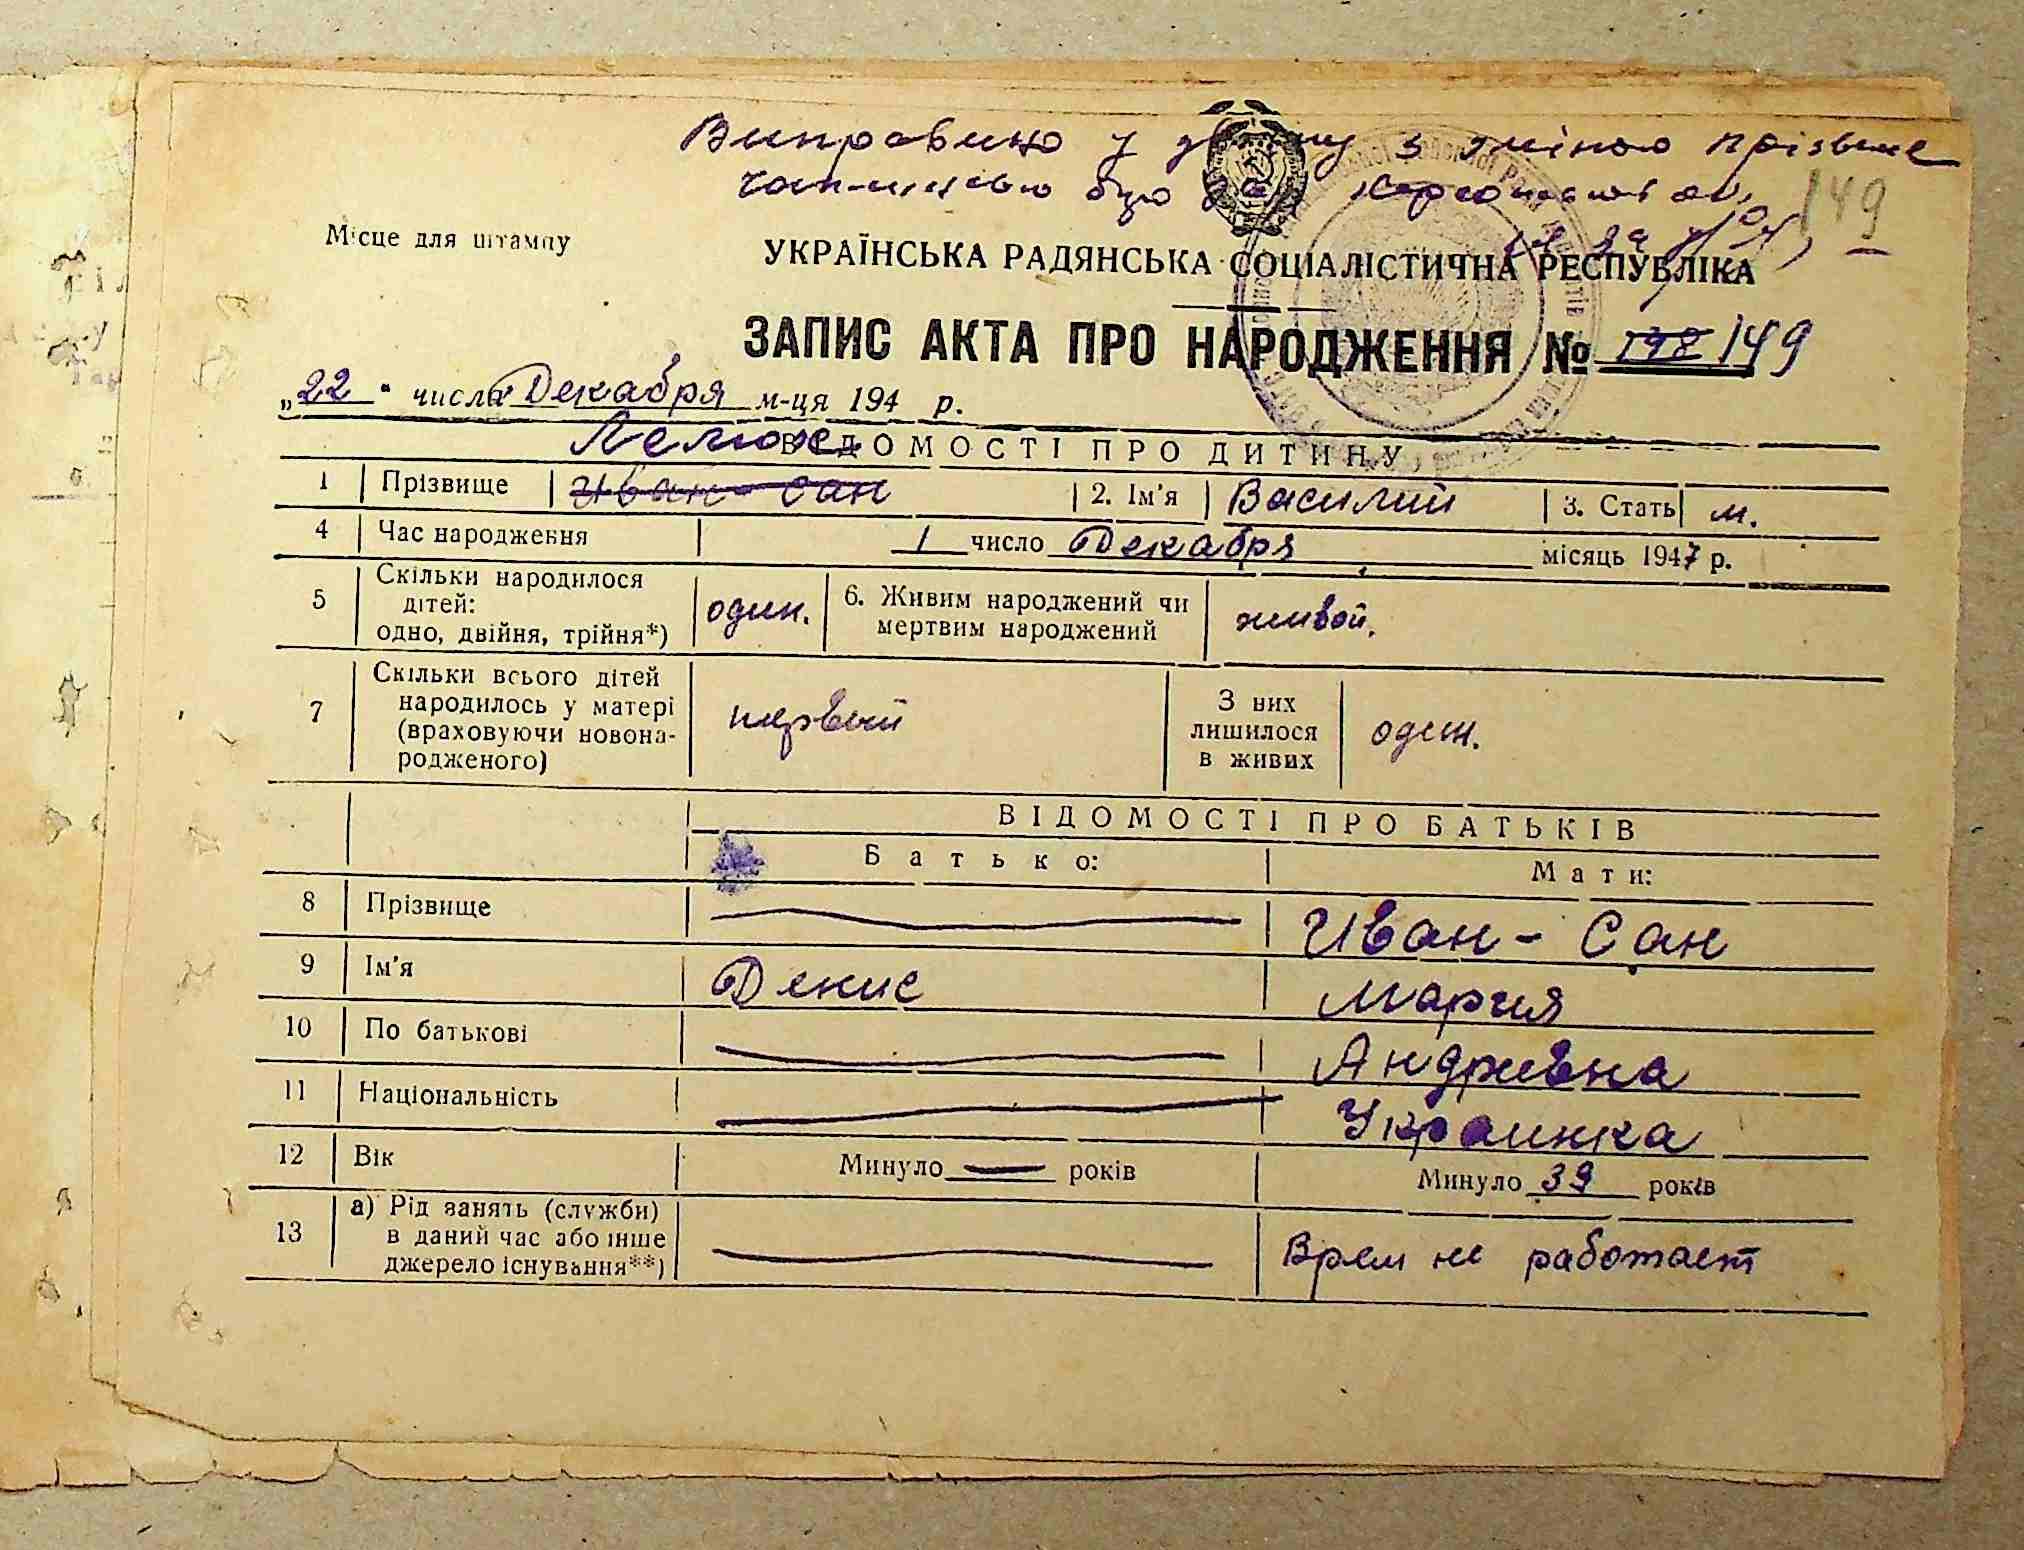 Виправлено у звязку з зміною прізвище
149
Місце для штампу
УКРАЇНСЬКА РАДЯНСЬКА СОЦІАЛІСТИЧНА РЕСПУБЛІКА
ЗАПИС АКТА ПРО НАРОДЖЕННЯ № 148 149
„22“ числа Декабря м-ця 194 р.
ВІДОМОСТІ ПРО ДИТИНУ
1 Прізвище Иван-Сан 2. Ім'я Василий 3. Стать м.
4 Час народження 1 число Декабря місяць 1947 р.
5 Скільки народилося дітей: одно, двійня, трійня*) один. 6. Живим народжений чи мертвим народжений живой.
7 Скільки всього дітей народилось у матері (враховуючи новонародженого) первый З них лишилося в живих один.
ВІДОМОСТІ ПРО БАТЬКІВ
Батько: Мати:
8 Прізвище Иван-Сан
9 Ім'я Денис Мария
10 По батькові Андриевна
11 Національність Украинка
12 Вік Минуло — років Минуло 39 років
13 а) Рід занять (служби) в даний час або інше джерело існування**) Врем не работает